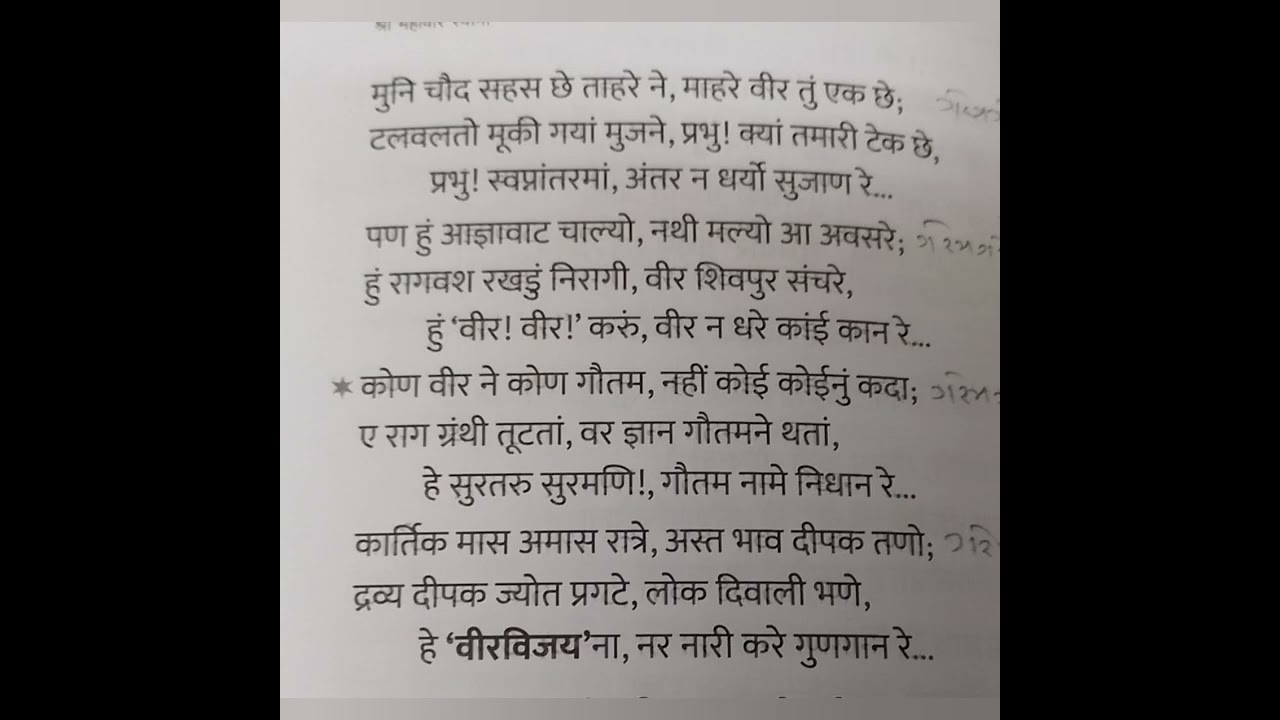 मुनि चौद सहस छे ताहरे ने, माहरे वीर तुं एक छे;
टलवलतो मूकी गयां मुजने, प्रभु! क्यां तमारी टेक छे,
प्रभु! स्वप्नांतरमां, अंतर न धर्यो सुजाण रे...
पण हुं आज्ञावाट चाल्यो, नथी मल्यो आ अवसरे;
हुं रागवश रखडुं निरागी, वीर शिवपुर संचरे,
हुं ‘वीर! वीर!’ करुं, वीर न धरे कांई कान रे...
✶ कोण वीर ने कोण गौतम, नहीं कोई कोईनुं कदा;
ए राग ग्रंथी तूटतां, वर ज्ञान गौतमने थतां,
हे सुरतरु सुरमणि!, गौतम नामे निधान रे...
कार्तिक मास अमास रात्रे, अस्त भाव दीपक तणो;
द्रव्य दीपक ज्योत प्रगटे, लोक दिवाली भणे,
हे ‘वीरविजय’ना, नर नारी करे गुणगान रे...